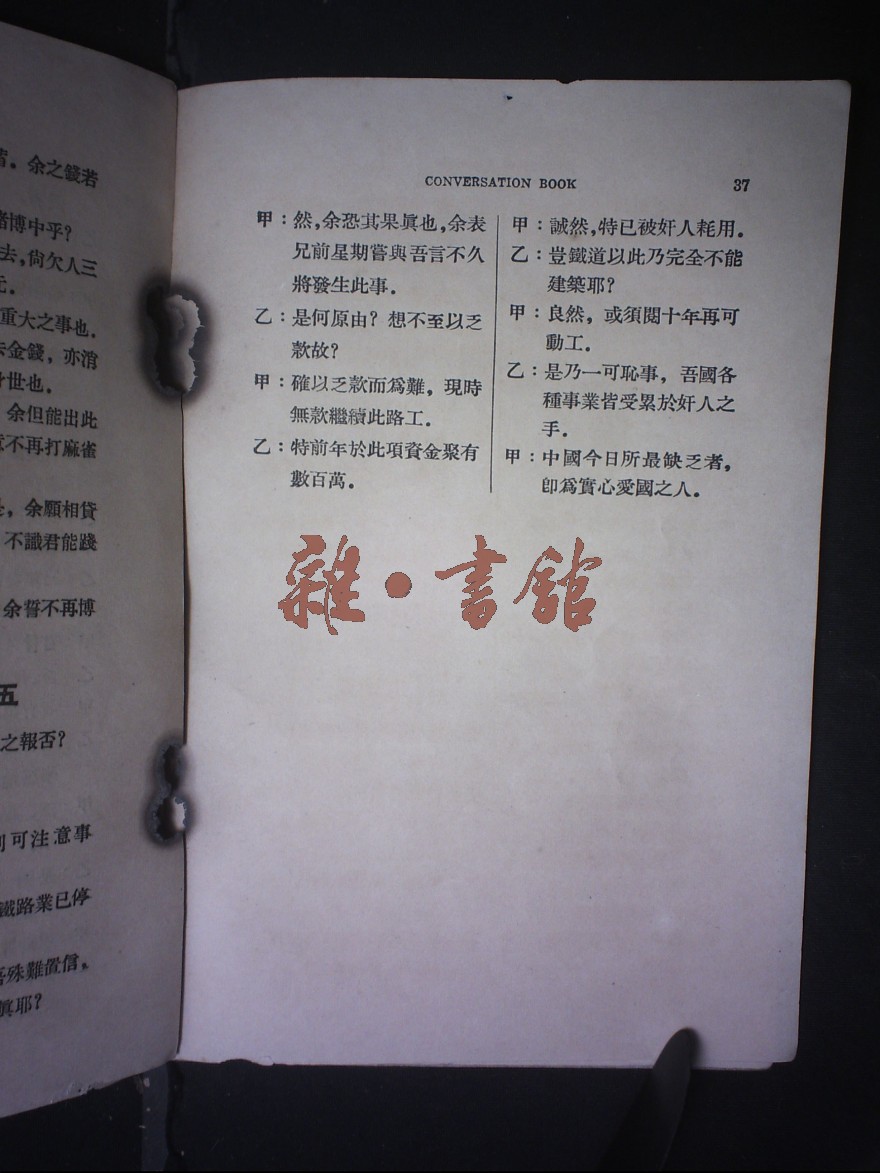 余之錢若
諸博中乎?
去,尚欠人三
元.
重大之事也.
去金錢,亦濳
身世也.
余但能出此
意不再打麻雀
余願相貸
不識君能踐
余誓不再博
五
之報否?
可注意事
鐵路業已停
吾殊難置信.
眞耶?
CONVERSATION BOOK 37
甲:然,余恐其果眞也,余表
兄前星期嘗與吾言不久
將發生此事.
乙:是何原由?想不至以乏
款故?
甲:確以乏款而爲難,現時
無款繼續此路工.
乙:特前年於此項資金聚有
數百萬.
甲:誠然,特已被奸人耗用.
乙:豈鐵道以此乃完全不能
建築耶?
甲:良然,或須閱十年再可
動工.
乙:是乃一可恥事,吾國各
種事業皆受累於奸人之
手.
甲:中國今日所最缺乏者,
卽爲實心愛國之人.
雜·書館